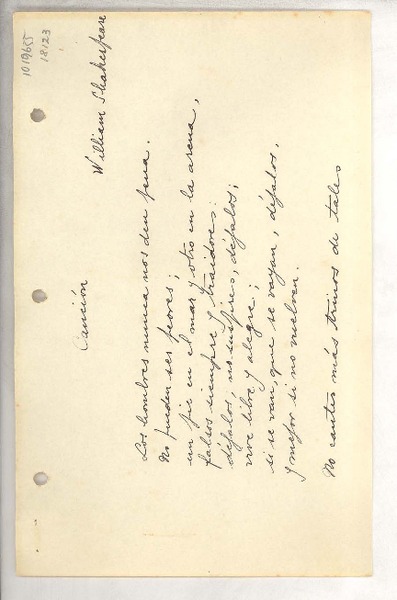 1019655
18123
William Shakespeare
Canción
Los hombres nunca nos den pena.
No pueden ser peores;
un pie en el mar y otro en la arena,
falsos siempre y traidores:
déjalos, no suspires, déjalos;
vive libre y alegre;
si se van, que se vayan, déjalos,
y mejor si no vuelven.
No cantes más trinos de tales